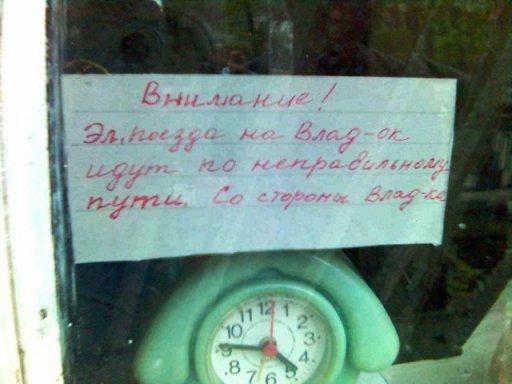 Внимание!
Эл.поезда на Влад-ок
идут по неправильному
пути. Со стороны Влад-ка
12
1
2
3
4
5
6
7
8
9
10